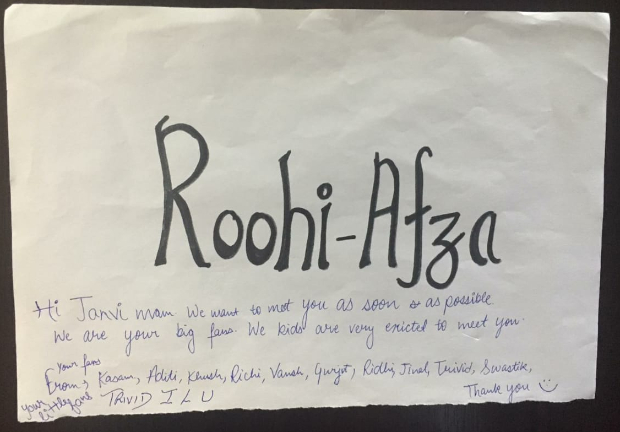 Roohi-Afza
Hi Janvi mam We want to met you as soon as possible.
We are your big fans. We kids are very exricted to meet you.
your fans
From:, Kasam, Aditi, Khush, Richi, Vansh, Gurjot, Ridhi, Jinal, Trivid, Swastik,
your littlefans
TRIVID I L U
Thank you